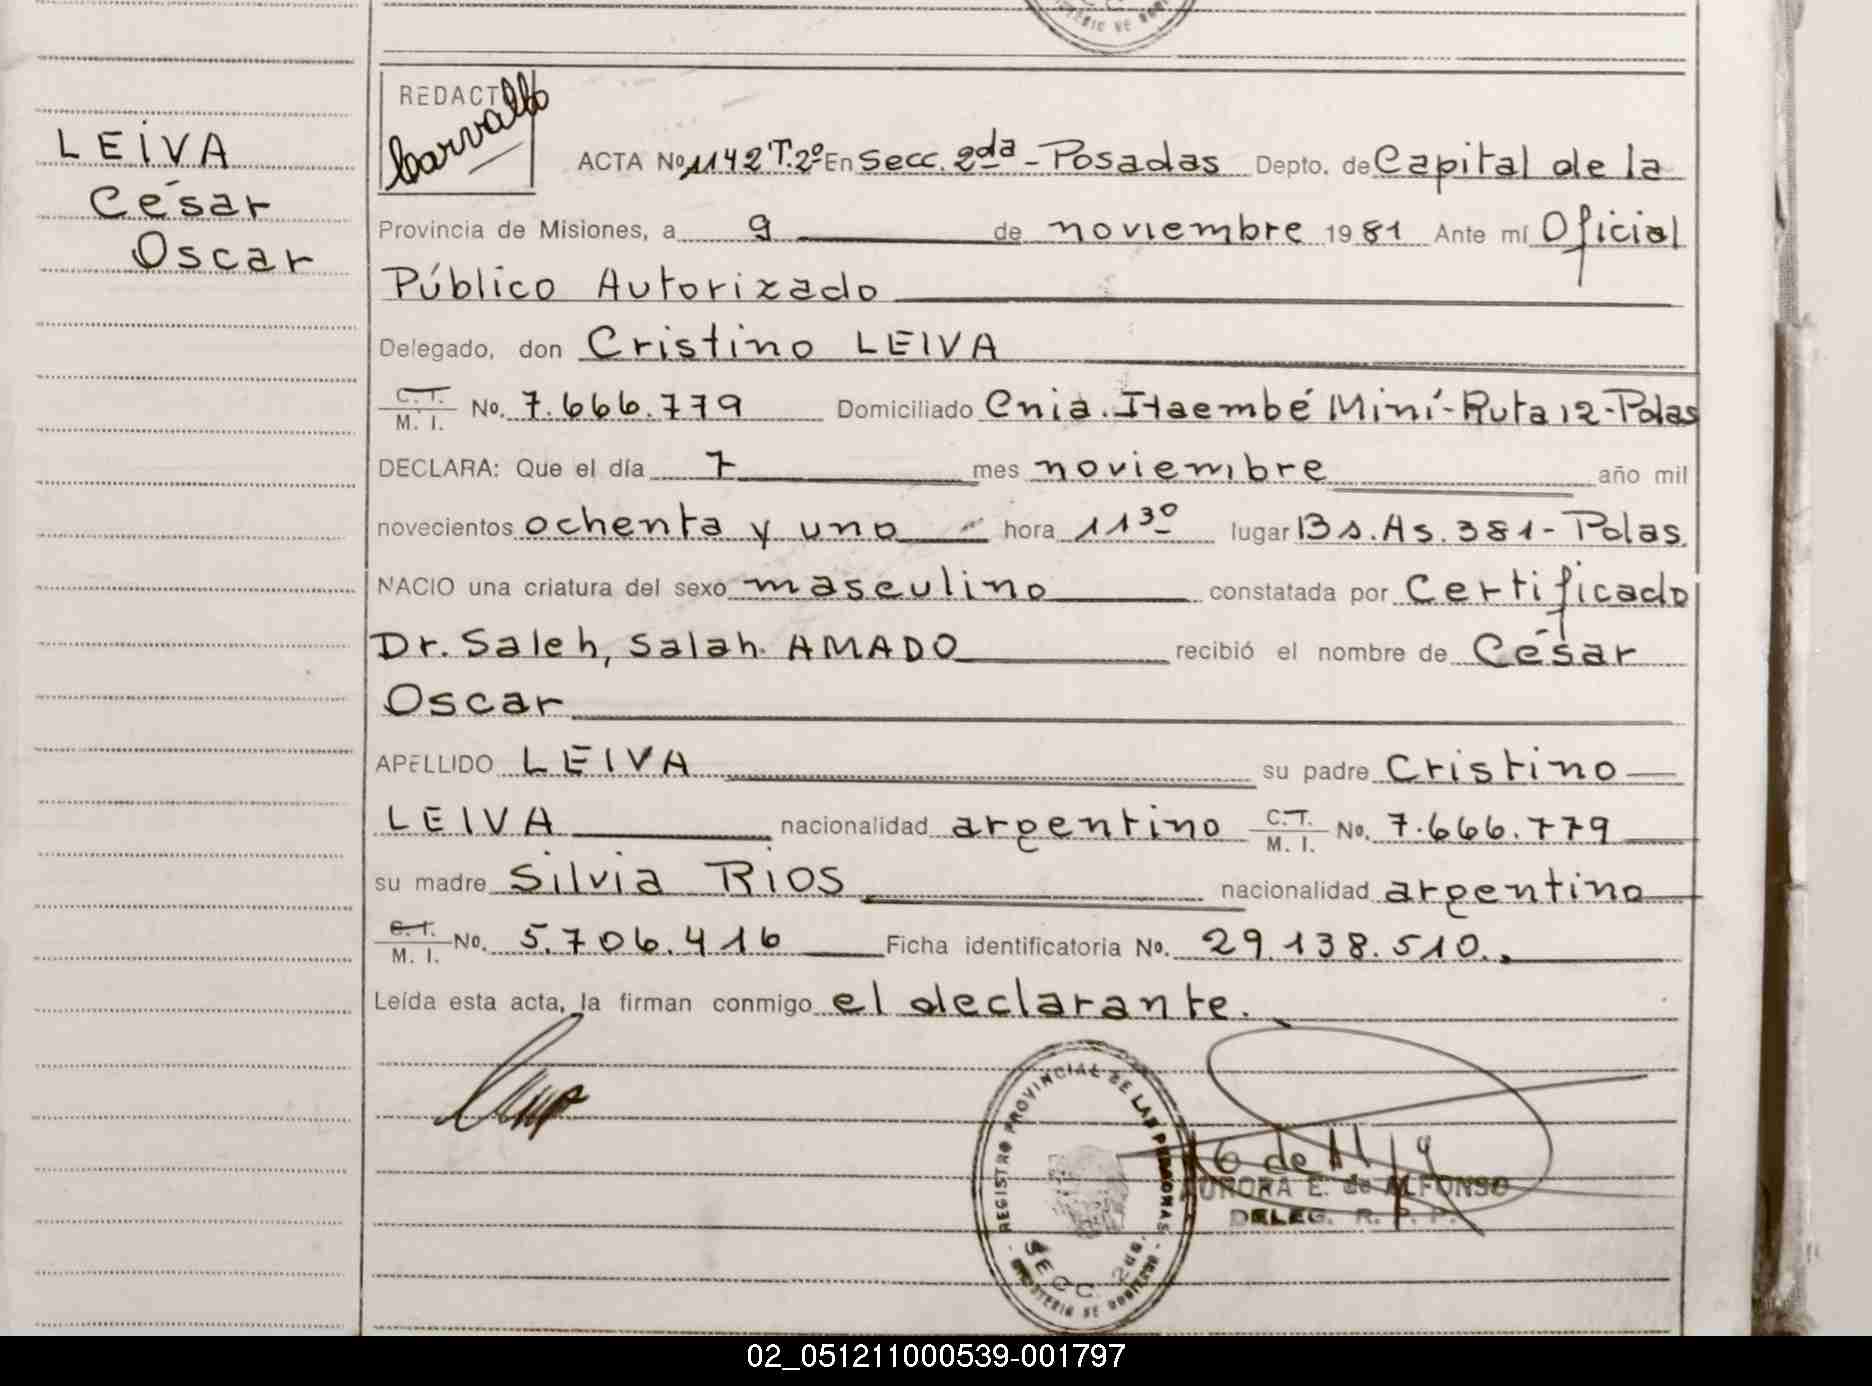 LEIVA
César
Oscar
REDACTO
Carvallo
ACTA No 1142 T.2º En Secc. 2da - Posadas Depto. de Capital de la
Provincia de Misiones, a 9 de noviembre 1981 Ante mí Oficial
Público Autorizado
Delegado, don Cristino LEIVA
C.T. M. I. No. 7.666.779 Domiciliado Cnia. Itaembé Miní - Ruta 12 - Pdas
DECLARA: Que el día 7 mes noviembre año mil
novecientos ochenta y uno hora 11 30 lugar Bs. As. 381 - Pdas.
NACIO una criatura del sexo masculino constatada por Certificado
Dr. Saleh, Salah. AMADO recibió el nombre de César
Oscar
APELLIDO LEIVA su padre Cristino
LEIVA nacionalidad argentino C.T. M. I. No. 7.666.779
su madre Silvia RIOS nacionalidad argentino
C.T. M. I. No. 5.706.416 Ficha identificatoria No. 29.138.510.
Leída esta acta, la firman conmigo el declarante.
REGISTRO PROVINCIAL DE LAS PERSONAS
SECC. 2da.
MINISTERIO DE GOBIERNO
AURORA E. de ALFONSO
DELEG. R. P. P.
02_051211000539-001797